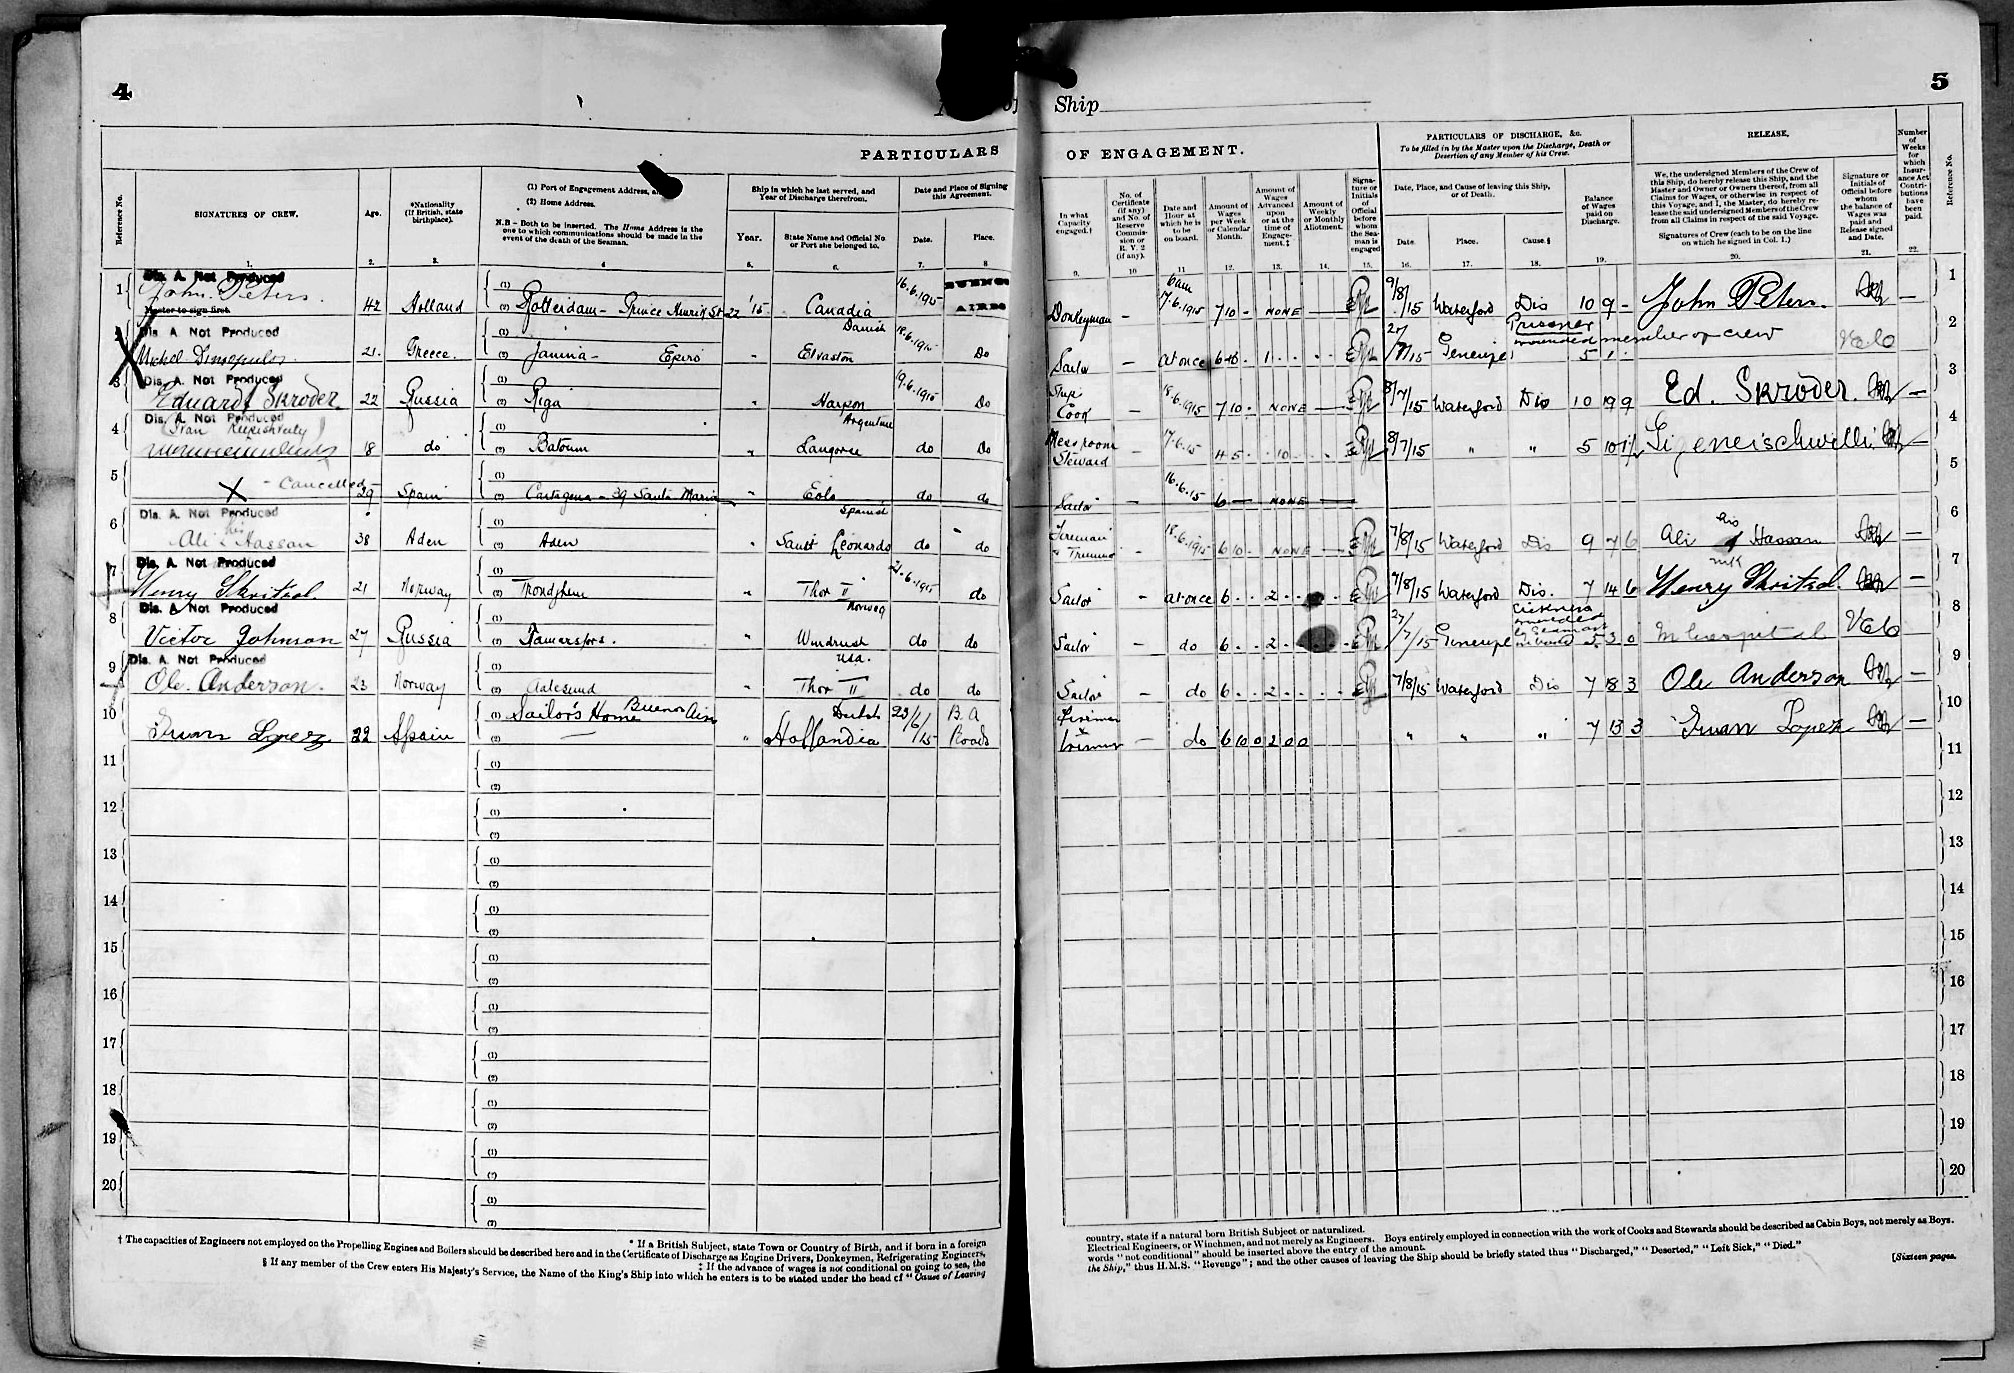 4
Ship
5
PARTICULARS
OF ENGAGEMENT.
PARTICULARS OF DISCHARGE, &c.
To be filled in by the Master upon the Discharge, Death or
Desertion of any Member of his Crew.
RELEASE.
Number of Weeks for which Insurance Act Contributions have been paid.
Reference No.
SIGNATURES OF CREW.
Age.
*Nationality
(If British, state
birthplace).
(1) Port of Engagement Address,
(2) Home Address.
N.B - Both to be inserted. The Home Address is the
one to which communications should be made in the
event of the death of the Seaman.
Ship in which he last served, and
Year of Discharge therefrom.
Year.
State Name and Official No.
or Port she belonged to.
Date and Place of Signing
this Agreement.
Date.
Place.
In what
Capacity
engaged.†
No. of
Certificate
(if any)
and No. of
Reserve
Commis-
sion or
R. V. 2
(if any).
Date and
Hour at
which he is
to be
on board.
Amount of
Wages
per Week
or Calendar
Month.
Amount of
Wages
Advanced
upon
or at the
time of
Engage-
ment.‡
Amount of
Weekly
or Monthly
Allotment.
Signa-
ture or
Initials
of
Official
before
whom
the Sea-
man is
engaged
Date, Place, and Cause of leaving this Ship,
or of Death.
Date.
Place.
Cause.§
Balance
of Wages
paid on
Discharge.
We, the undersigned Members of the Crew of
this Ship, do hereby release this Ship, and the
Master and Owner or Owners thereof, from all
Claims for Wages, or otherwise in respect of
this Voyage, and I, the Master, do hereby re-
lease the said undersigned Members of the Crew
from all Claims in respect of the said Voyage.
Signatures of Crew (each to be on the line
on which he signed in Col. 1.)
Signature or
Initials of
Official before
whom
the balance of
Wages was
paid and
Release signed
and Date.
Reference No.
1. 2. 3. 4 5. 6. 7. 8 9. 10 11 12. 13. 14. 15. 16. 17. 18. 19. 20. 21. 22.
Dis. A. Not Produced
1 John Peters. 42 Holland (1) (2) Rotterdam - Prince Henrik St 22 '15 Canadia 16.6.1915 BUENOS AIRES Donkeyman - 6am 17.6.1915 7 10 - NONE 9/8/15 Waterford Dis 10 9 - John Peters. - 1
Master to sign first.
Danish
Dis A. Not Produced
2 21. Greece. (1) (2) Janina - Epiro " Elvaston 18.6.1915 Do Sailor - at once 1 27/7/15 Prisoner wounded member of crew 5 1 2
Dis. A. Not Produced
3 Eduard Skroder. 22 Russia (1) (2) Riga " Harpon 19.6.1915 Do Ship Cook - 18.6.1915 7 10 - NONE 8/7/15 Waterford Dis 10 19 9 Ed. Skroder. - 3
Argentine
Dis. A. Not Produced
4 18 do (1) (2) Batoum " Langorse do Do Messroom Steward - 17.6.15 4 5 10 8/7/15 " " 5 10 - 4
5 X - Cancelled 29 Spain (1) (2) Cartagena - 39 Santa Maria " Eolo do do Sailor - 16.6.15 6 - NONE - 5
Spanish
Dis. A. Not Produced
6 Ali his Hassan 38 Aden (1) (2) Aden " Sautt Leonardo do do Fireman & Trimmer - 18.6.1915 6 10 - NONE 7/8/15 Waterford Dis 9 7 6 Ali his Hassan mrk - 6
Dis. A. Not Produced
7 Henry Skritsol. 21 Norway (1) (2) Trondhjem " Thor II 21.6.1915 do Sailor at once 6 2 7/8/15 Waterford Dis. 7 14 6 Henry Skritsol. - 7
Norway
Dis. A. Not Produced
8 Victor Johnson 27 Russia (1) (2) Tamersfors. " Windrush do do Sailor - do 6 2 27/7/15 wounded 5 3 0 In hospital 8
USA.
Dis. A. Not Produced
9 Ole. Anderson. 23 Norway (1) (2) Aalesund " Thor II do do Sailor - do 6 2 7/8/15 Waterford Dis 7 18 3 Ole Anderson - 9
10 Juan Lopez 22 Spain (1) Sailor's Home Buenos Aires (2) — " Dutch Hollandia 23/6/15 B.A Roads Fireman & Trimmer - do 6 10 0 2 0 0 " " " 7 13 3 Juan Lopez - 10
11 (1) (2) 11
12 (1) (2) 12
13 (1) (2) 13
14 (1) (2) 14
15 (1) (2) 15
16 (1) (2) 16
17 (1) (2) 17
18 (1) (2) 18
19 (1) (2) 19
20 (1) (2) 20
* If a British Subject, state Town or Country of Birth, and if born in a foreign
country, state if a natural born British Subject or naturalized.
† The capacities of Engineers not employed on the Propelling Engines and Boilers should be described here and in the Certificate of Discharge as Engine Drivers, Donkeymen, Refrigerating Engineers,
Electrical Engineers, or Winchmen, and not merely as Engineers. Boys entirely employed in connection with the work of Cooks and Stewards should be described as Cabin Boys, not merely as Boys.
‡ If the advance of wages is not conditional on going to sea, the
words "not conditional" should be inserted above the entry of the amount.
§ If any member of the Crew enters His Majesty's Service, the Name of the King's Ship into which he enters is to be stated under the head of "Cause of Leaving
the Ship," thus H.M.S. "Revenge"; and the other causes of leaving the Ship should be briefly stated thus "Discharged," "Deserted," "Left Sick," "Died."
[Sixteen pages.